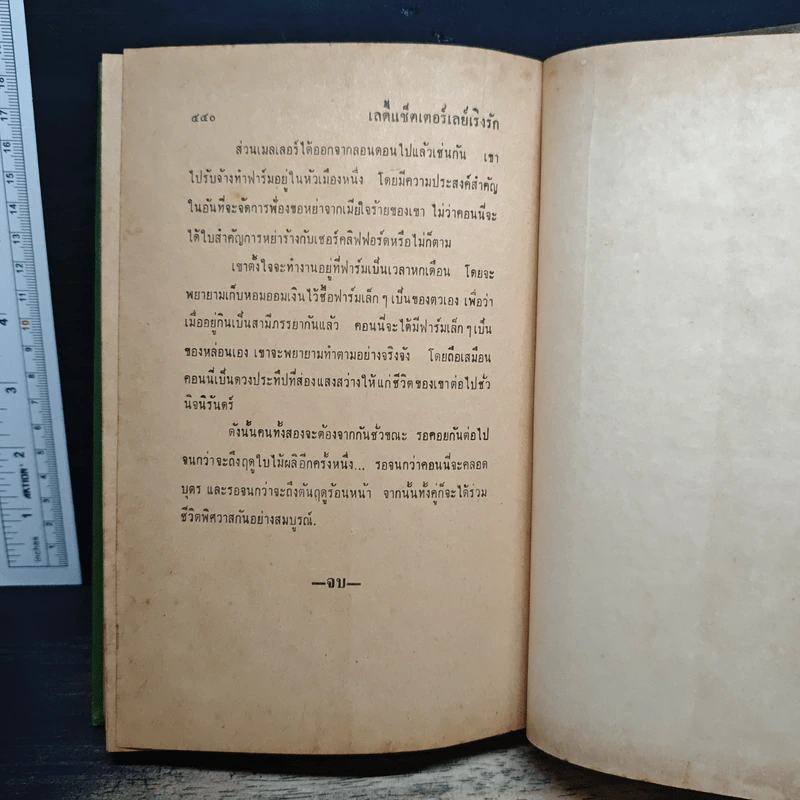 ๕๔๐ เลดี้แช็ตเตอร์เลย์เริงรัก
ส่วนเมลเลอร์ได้ออกจากลอนดอนไปแล้วเช่นกัน เขา
ไปรับจ้างทำฟาร์มอยู่ในหัวเมืองหนึ่ง โดยมีความประสงค์สำคัญ
ในอันที่จะจัดการฟ้องขอหย่าจากเมียใจร้ายของเขา ไม่ว่าคอนนี่จะ
ได้ใบสำคัญการหย่าร้างกับเซอร์คลิฟฟอร์ดหรือไม่ก็ตาม
เขาตั้งใจจะทำงานอยู่ที่ฟาร์มเป็นเวลาหกเดือน โดยจะ
พยายามเก็บหอมออมเงินไว้ซื้อฟาร์มเล็กๆ เป็นของตัวเอง เพื่อว่า
เมื่ออยู่กินเป็นสามีภรรยากันแล้ว คอนนี่จะได้มีฟาร์มเล็กๆ เป็น
ของหล่อนเอง เขาจะพยายามทำตามอย่างจริงจัง โดยถือเสมือน
คอนนี่เป็นดวงประทีปที่ส่องแสงสว่างให้แก่ชีวิตของเขาต่อไปชั่ว
นิจนิรันดร์
ดังนั้นคนทั้งสองจะต้องจากกันชั่วขณะ รอคอยกันต่อไป
จนกว่าจะถึงฤดูใบไม้ผลิอีกครั้งหนึ่ง... รอจนกว่าคอนนี่จะคลอด
บุตร และรอจนกว่าจะถึงต้นฤดูร้อนหน้า จากนั้นทั้งคู่ก็จะได้ร่วม
ชีวิตพิศวาสกันอย่างสมบูรณ์.
—จบ—
18
17
16
15
14
13
12
11
10
9
8
7
6
5
4
3
2
1
4
3
2
1
inches